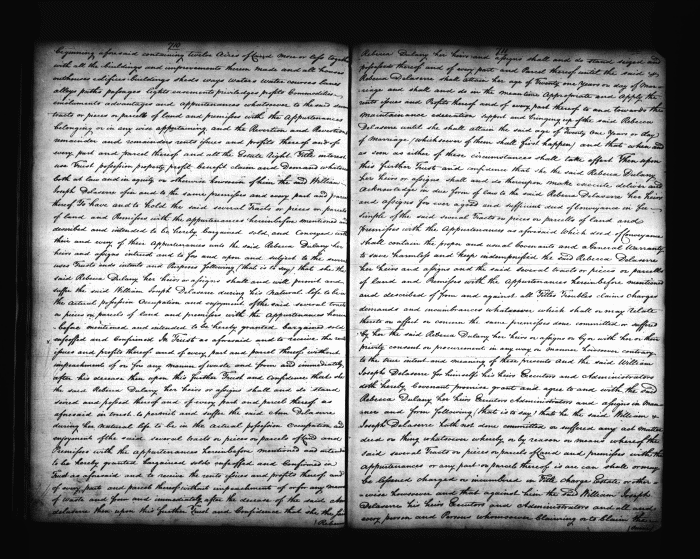 beginning aforesaid containing twelve Acres of Land more or less together
with all the buildings and improvements thereon made and all houses
outhouses edifices buildings sheds ways waters water courses lanes
alleys paths passages lights easements priviledges profits Commodities
emoluments advantages and appurtenances whatsoever to the said
tracts or pieces or parcells of land and premisses with the Appurtenances
belonging or in any wise appertaining and the Reversion and Reversions
remainder and remainders rents issues and profits thereof and of
every part and parcel thereof and all the Estate Right Title interest
use Trust possession property profit benefit claim and Demand whatsoever
both at law and in equity or otherwise howsoever of him the said William
Joseph Delasere of in and to the same premisses and every part and parcel
thereof To have and to hold the said several Tracts or pieces or parcels
of land and Premisses with the appurtenances hereinbefore mentioned and
described and intended to be hereby bargained sold and Conveyed with
their and every of their Appurtenances unto the said Rebecca Dulany her
heirs and assigns interest and to for and upon and subject to the several
uses Trusts ends intents and Purposes following (that is to say) that she the
said Rebecca Dulany her heirs or assigns shall and will permit and
suffer the said William Joseph Delasere during his natural life to be in
the actual possession Occupation and enjoyment of the said several tracts
or pieces or parcels of land and premisses with the Appurtenances herein
before mentioned and intended to be hereby granted bargained sold
enfeoffed and Confirmed In Trust as aforesaid and to receive the rents
issues and profits thereof and of every part and parcel thereof without
impeachment of or for any manner of waste and from and immediately
after his decease then upon this further Trust and Confidence that she
the said Rebecca Dulany her heirs or assigns shall and do stand
seized and possest thereof and of every part and parcel thereof as
aforesaid in trust to permit and suffer the said Ann Delasere
during her natural life to be in the actual possession Occupation and
enjoyment of the said several tracts or pieces or parcels of land and
Premisses with the Appurtenances hereinbefore mentioned and intended
to be hereby granted bargained sold enfeoffed and Confirmed in
Trust as aforesaid and to receive the rents issues and profits thereof and
of every part and parcel thereof without impeachment of or for any manner
of waste and from and immediately after the decease of the said Ann
Delasere then upon this further Trust and Confidence that she the said
Rebecca
Rebecca Dulany her heirs and assigns shall and do stand seized and
possessed thereof and of every part and Parcel thereof until the said
Rebecca Delasere shall attain her age of Twenty one Years or day of Mar-
riage and shall and do in the meantime Appropriate and Apply the
rents issues and Profits thereof and of every part thereof to and towards the
maintenance education support and bringing up of the said Rebecca
Delasere until she shall attain the said age of Twenty One Years or day
of Marriage (whichsoever of them shall first happen) and that when and
as soon as either of these circumstances shall take effect Then upon
this further Trust and confidence that she the said Rebecca Dulany
her heirs or assigns shall and do thereupon make execute deliver and
Acknowledge in due form of law to the said Rebecca Delasere her heirs
and assigns for ever a good and sufficient deed of Conveyance in fee
simple of the said several Tracts or pieces or parcells of land and
premisses with the Appurtenances as aforesaid which deed of Conveyance
shall contain the proper and usual Covenants and a General Warranty
to save harmless and keep indemnified the said Rebecca Delasere
her heirs and assigns and the said several tracts or pieces or parcells
of land and Premisses with the Appurtenances hereinbefore mentioned
and described of from and against all Titles Troubles claims charges
demands and incumbrances whatsoever which shall or may relate
thereto or affect or concern the same premisses done committed or suffered
by her the said Rebecca Dulany her heirs or assigns or by or with her or their
privity consent or procurement in any way or manner however contrary
to the true intent and meaning of these presents And the said William
Joseph Delasere for himself his heirs Executors and Administrators
doth hereby Covenant promise grant and agree to and with the said
Rebecca Dulany her heirs Executors Administrators and assigns in man-
ner and form following (that is to say) that he the said William
Joseph Delasere hath not done committed or suffered any act matter
deed or thing whatsoever whereby or by reason or means whereof the
said several Tracts or pieces or parcells of Land and premisses with the
Appurtenances or any part or parcel thereof is are can shall or may
be lessened charged or incumbered in Title charge Estate or other-
wise howsoever and that against him the said William Joseph
Delasere his heirs Executors and Administrators and all and
every person and Persons whomsoever Claiming or to claim